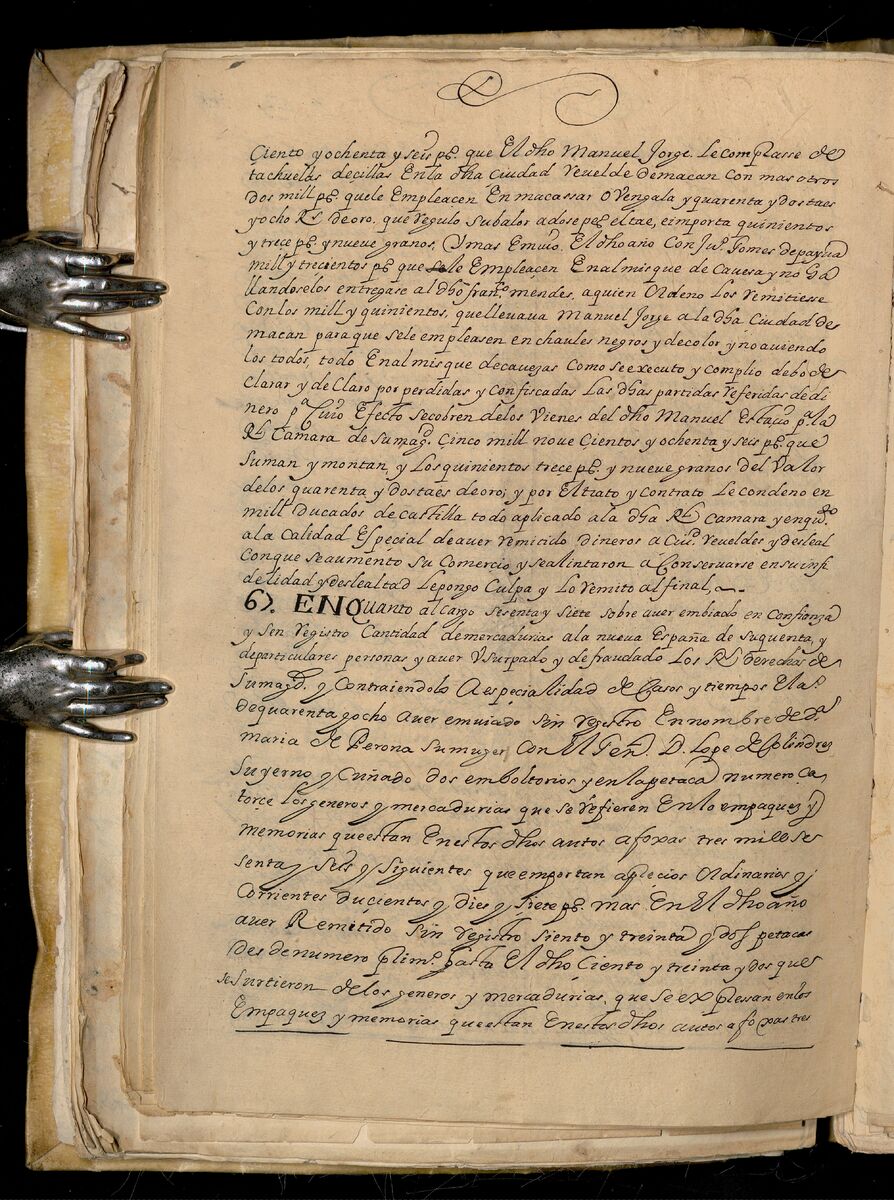 Ciento y ochenta y seis ps. que El dho Manuel Jorge. Le comprasse de
tachuelas decillas En la dha Ciudad Revelde de macan con mas otros
Dos mill ps. quele Empleacen En macassar o Vengala y quarenta y dos taes
y ocho Rs. de oro. que Regulo su balor adose pes. el tae, e importa quinientos
y trece ps. y nueve granos. Y mas Emvio. El dho año Con Juo. Gomes de payba
mill y trecientos ps. que se le Empleacen En almisque de Cavesa y no ha
llandoselos entregase al dho franco. mendes, aquien ordeno los Remitiesse
Con los mill y quinientos, que llevava Manuel Jorge a la dha Ciudad de
macan para que sele empleasen en chaules negros y de color y no aviendo
los todos, todo En almisque de cavezas Como se executo y cumplio debo de
Clarar y declaro por perdidas y confiscadas Las dhas partidas Referidas de di
nero pa. Cuio Efecto se cobren de los Vienes del dho Manuel Estacio pa. la
Rl. Camara de su magd. Cinco mill nove Cientos y ochenta y seis ps. que
Suman y montan, y Los quinientos trece ps. y nueve granos del Valor
delos quarenta y dos taes de oro; y por El trato y contrato Le condeno en
mill Ducados de Castilla todo aplicado a la dha Rl. Camara y en quo.
a la Calidad Especial de aver Remitido Dineros a Ciud. Reveldes y desleal
Conque se aumento su Comercio y se alintaron a Conservarse en su infi
delidad y deslealtad Le pongo Culpa y Lo Remito al final,
67. EN Quanto al cargo sesenta y siete sobre aver embiado en Confianza
y Sin Registro Cantidad de mercadurias a la nueva España de su quenta, y
de particulares personas y aver Usurpado y defraudado Los Rs. derechos de
Su magd. y Contraiendolo A especialidad de Casos y tiempos El a.
de quarenta y ocho aver emviado Sin Registro En nombre de Da.
maria de Perona su muger Con El Gen. D. Lope de Colindres
Su yerno y Cuñado dos emboltorios y en la petaca numero Ca
torce Los generos y mercadurias que se refieren En lo empaques y
memorias que estan En estos dhos autos a foxas tres mill se
senta y seis y siguientes que emportan a precios ordinarios y
Corrientes ducientos y dies y siete ps. mas En El dho año
aver Remitido Sin Registro Siento y treinta y dos petacas
des de numero prim. hasta El dho Ciento y treinta y dos que
se Surtieron de los generos y mercadurias, que se expresan en los
Empaques y memorias que estan En estos dhos autos a foxas tres